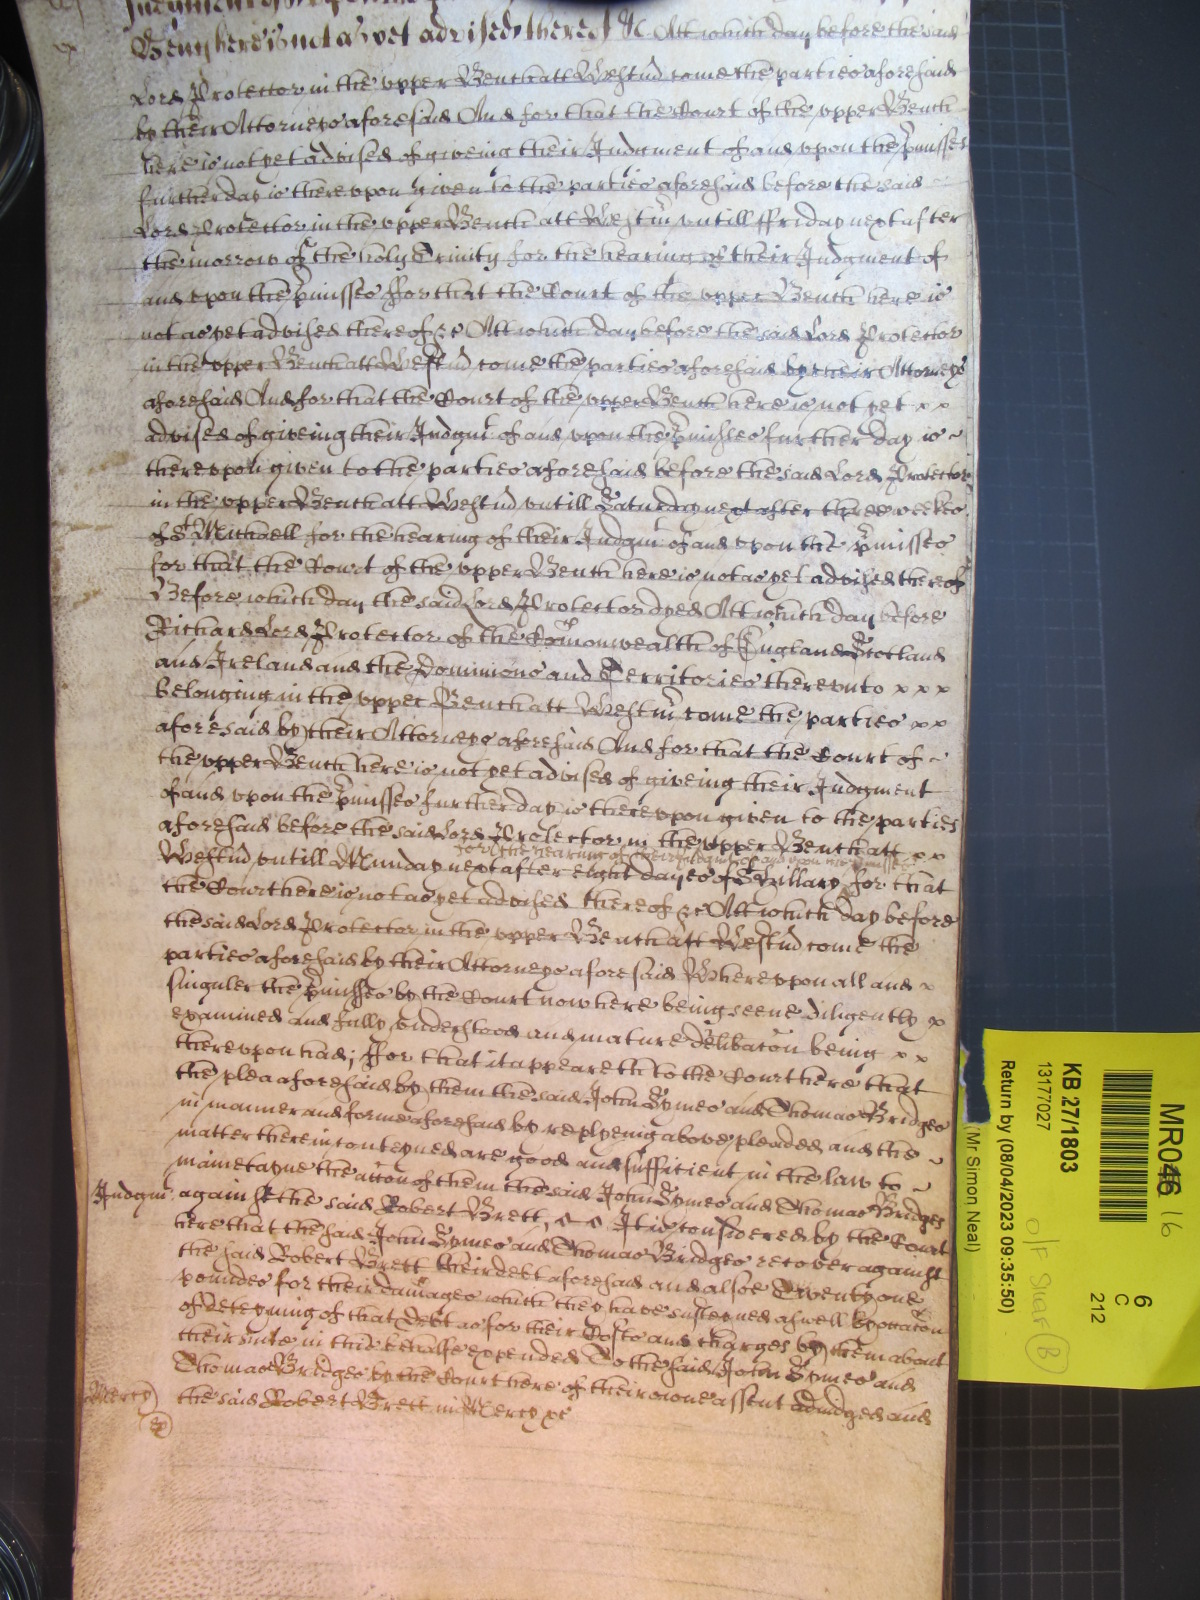 Bench here is not as yet advised thereof &c Att which day before the said
Lord Protector in the upper Bench att Westm̃ come the parties aforesaid
by their Attorneys aforesaid And for that the Court of the upper Bench
here is not yet advised of giveing their Judgment of and upon the p̃misses
further day is thereupon given to the parties aforesaid before the said
Lord Protector in the upper Bench att Westm̃ untill ffriday next after
the morrow of the holy Trinity for the hearing of their Judgment of
and upon the p̃misses ffor that the Court of the upper Bench here is
not as yet advised thereof &c Att which day before the said Lord Protector
in the upper Bench att Westm̃ come the parties aforesaid by their Attorneys
aforesaid And for that the Court of the upper Bench here is not yet x x
advised of giveing their Judgm̃t of and upon the p̃misses further day is ~
thereupon given to the parties aforesaid before the said Lord Protector
in the upper Bench att Westm̃ untill Saturday next after three weekes
of St Michaell for the hearing of their Judgm̃t of and upon the p̃misses
for that the Court of the upper Bench here is not as yet advised thereof
Before which day the said Lord Protector dyed Att which day before
Richard Lord Protector of the Com̃onwealth of England Scotland
and Ireland and the Dominions and Territories thereunto x x x
belonging in the upper Bench att Westm̃ come the parties x x
aforesaid by their Attorneys aforesaid And for that the Court of ~
the upper Bench here is not yet advised of giveing their Judgment
of and upon the p̃misses further day is thereupon given to the parties
aforesaid before the said Lord Protector in the upper Bench att x x
for the hearing of their Judgment of and upon the p̃misses
Westm̃ untill Munday next after eight dayes of St Hillary for that
the Court here is not as yet advised thereof &c Att which day before
the said Lord Protector in the upper Bench att Westm̃ come the
parties aforesaid by their Attorneys aforesaid Whereupon all and x
singuler the p̃misses by the Court now here being seene diligently x
examined and fully understood and mature delibac̃on being x x
thereupon had; ffor that it appeareth to the Court here that
the plea aforesaid by them the said John Symes and Thomas Bridges
in manner and forme aforesaid by replyeing above pleaded and the
matter therein conteyned are good and sufficient in the law to ~
mainetayne the acc̃on of them the said John Symes and Thomas Bridges
Judgm̃t against the said Robert Brett, It is considered by the Court
here that the said John Symes and Thomas Bridges recover against
the said Robert Brett their debt aforesaid and alsoe Twenty one
poundes for their damages which they have susteyned aswell by occac̃on
of deteyning of that Debt as for their Costs and charges by them about
their suite in that behalfe expended To the said John Symes and
Thomas Bridges by the Court here of their owne assent adiudged and
Mercy the said Robert Brett in Mercy &c
MR046 16
6
C
212
KB 27/1803
13177027
Return by (08/04/2023 09:35:50)
(Mr Simon Neal)
O/F Staff (B)